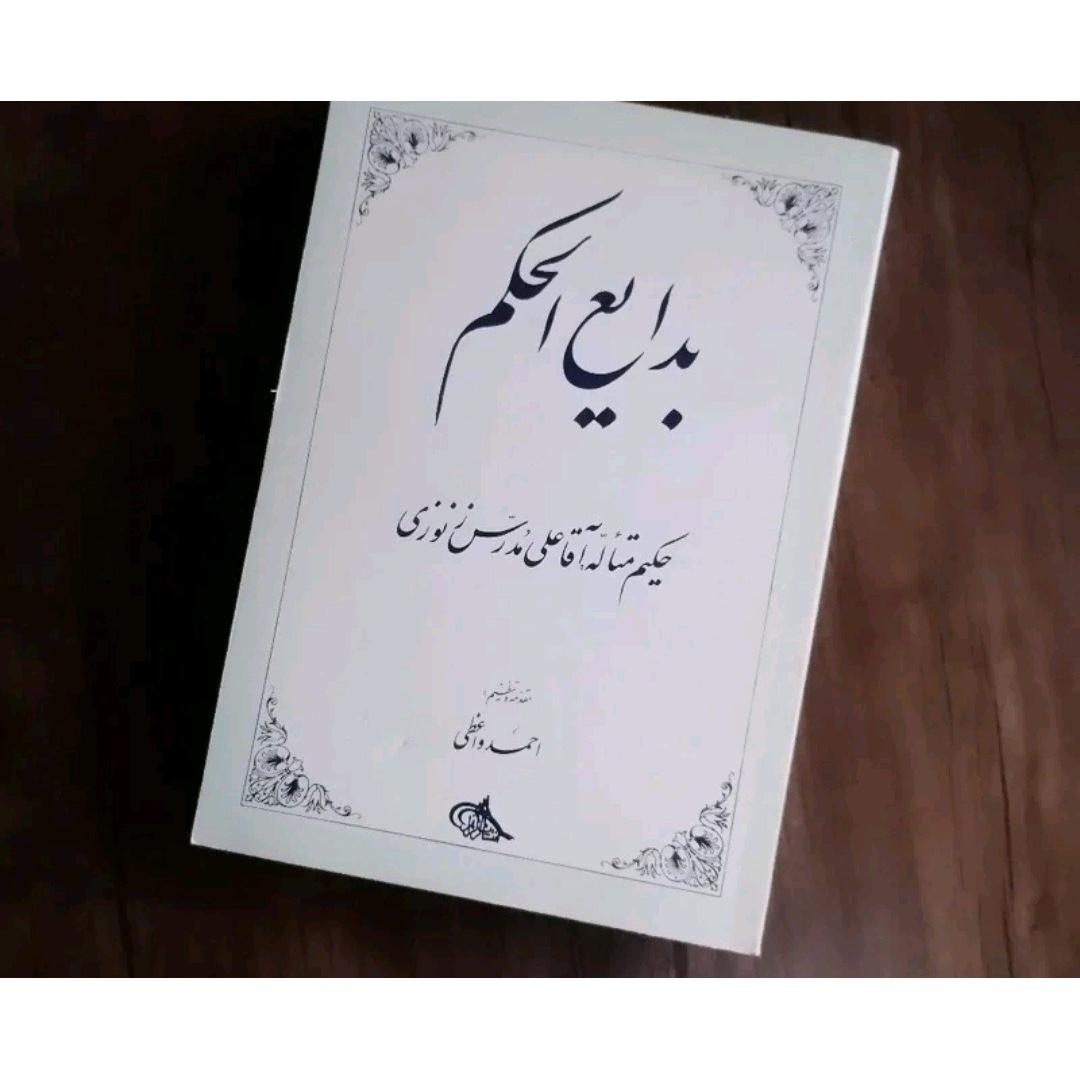 بدایع الحکم
حکیم متألّه آقا علی مُدرّس زنوزی
مقدمه و تنظیم:
احمد واعظی